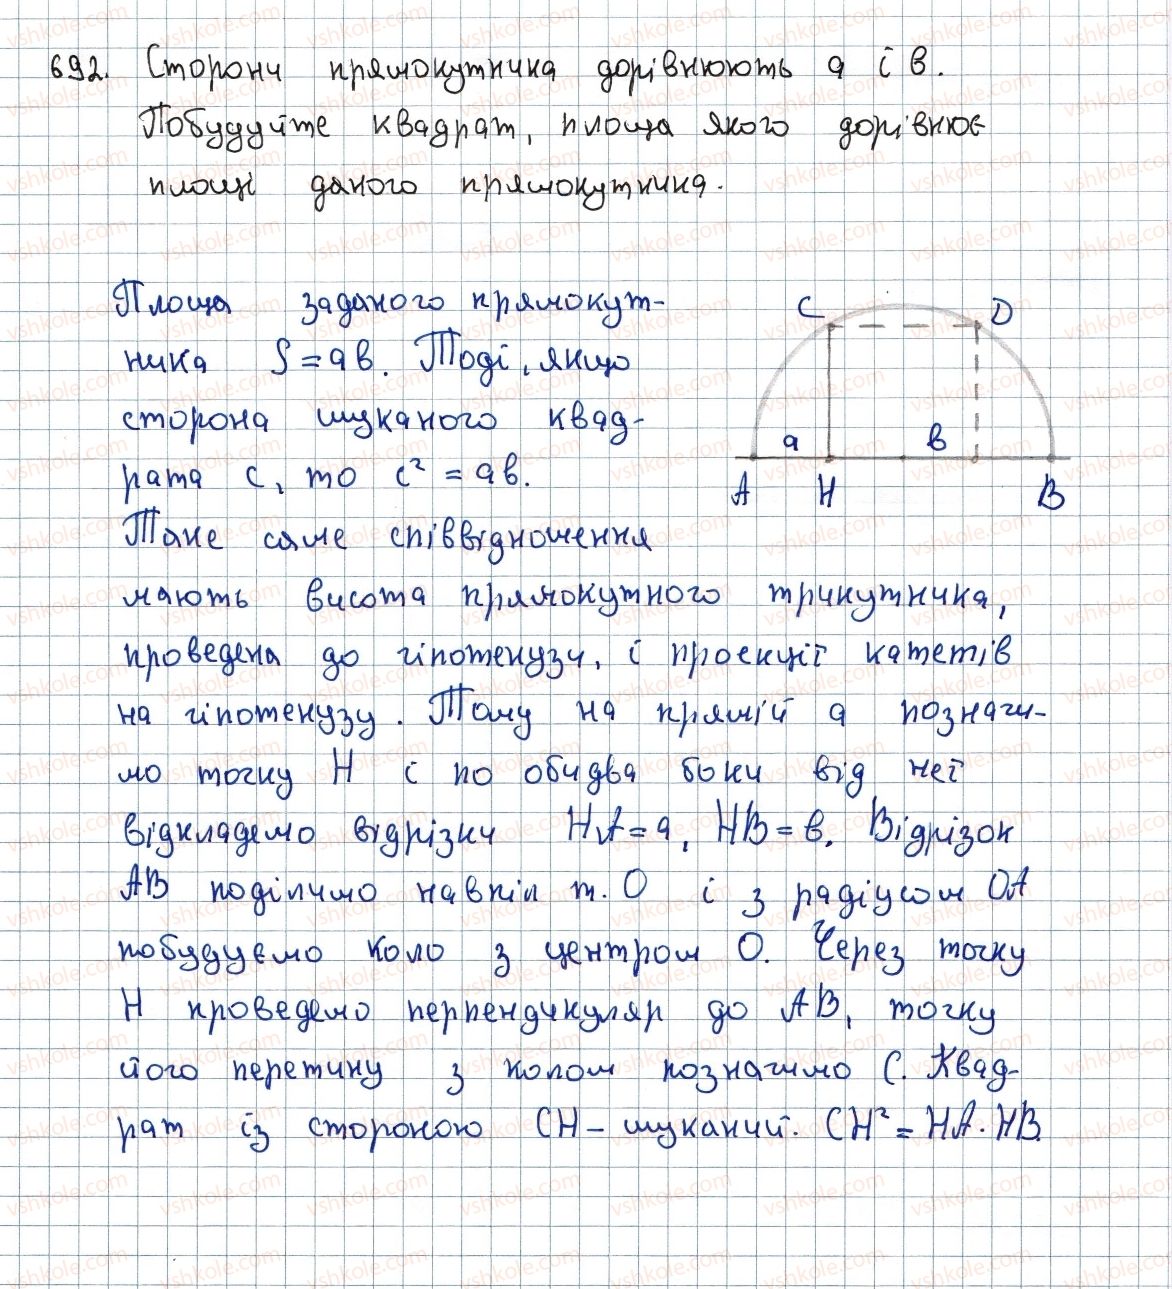 692. Сторони прямокутника дорівнюють a і b.
Побудуйте квадрат, площа якого дорівнює
площі даного прямокутника.
Площа заданого прямокут-
ника S = ab. Тоді, якщо
сторона шуканого квад-
рата c, то c² = ab.
C D
a b
A H B
Таке саме співвідношення
мають висота прямокутного трикутника,
проведена до гіпотенузи, і проекції катетів
на гіпотенузу. Тому на прямій a позначи-
мо точку H і по обидва боки від неї
відкладемо відрізки HA = a, HB = b. Відрізок
AB поділимо навпіл т. O і з радіусом OA
побудуємо коло з центром O. Через точку
H проведемо перпендикуляр до AB, точку
його перетину з колом позначимо C. Квад-
рат із стороною CH – шуканий. CH² = HA · HB.
vshkole.com